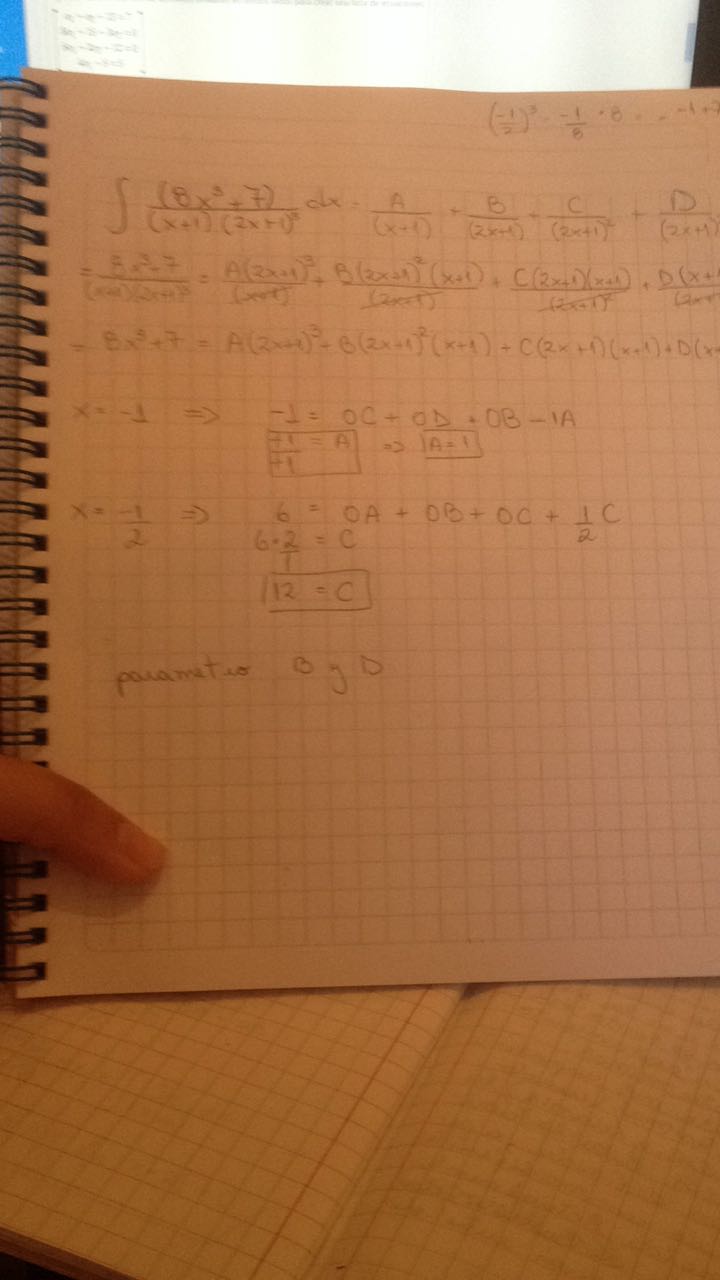 (-1/2)³ = -1/8 · 8 = -1+7
∫ (8x³+7)/((x+1)(2x+1)³) dx = A/(x+1) + B/(2x+1) + C/(2x+1)² + D/(2x+1)
= 8x³+7/((x+1)(2x+1)³) = A(2x+1)³/(x+1) + B(2x+1)²(x+1)/(2x+1) + C(2x+1)(x+1)/(2x+1)² + D(x+1/(2x+
= 8x³+7 = A(2x+1)³+B(2x+1)²(x+1)+C(2x+1)(x+1)+D(x+
x = -1 => -1 = 0C + 0D + 0B - 1A
+1/+1 = A => A=1
x = -1/2 => 6 = 0A + 0B + 0C + 1/2 C
6·2/1 = C
12 = C
parametro B y D